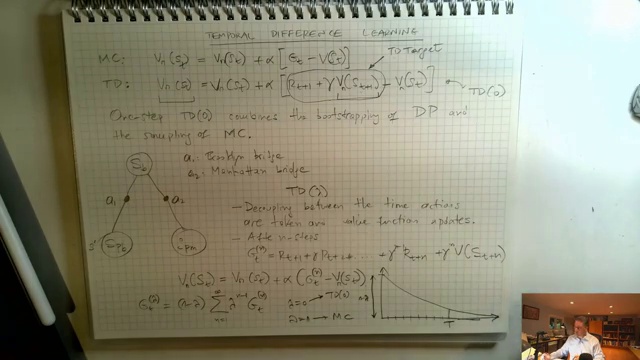 TEMPORAL DIFFERENCE LEARNING
MC: Vπ(St) = Vπ(St) + α [Gt - V(St)]
TD Target
TD: Vπ(St) = Vπ(St) + α [Rt+1 + γVπ(St+1) - Vπ(St)]
TD(0)
One-step TD(0) combines the bootstrapping of DP and
the sampling of MC.
a1: Brooklyn bridge
a2: Manhattan bridge
St
a1
a2
TD(λ)
- Decoupling between the time actions
are taken and value function updates.
- After n-steps
Gt(n) = Rt+1 + γRt+2 + ... + γ Rt+n + γn V(St+n)
Vπ(St) = Vπ(St) + α (Gt(n) - Vπ(St))
Gt(λ) = (1-λ) Σ λn-1 Gt(n)
n=1
λ=0 → TD(0)
λ=1 → MC
1-λ
T